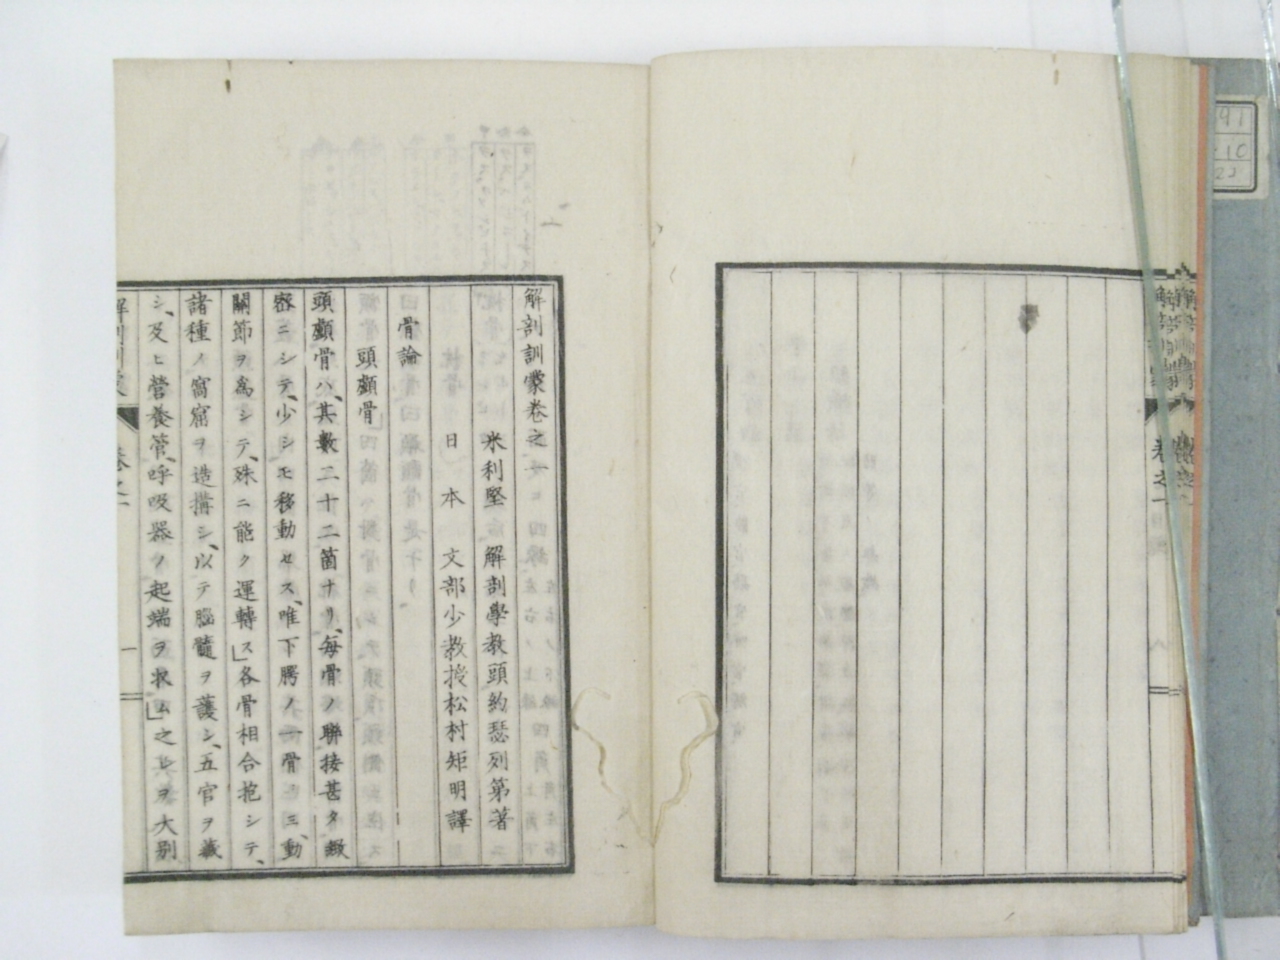 解剖訓蒙卷之一
米利堅 解剖學教頭約瑟列第著
日本 文部少教授松村矩明譯
骨論
頭顱骨
頭顱骨ハ、其數二十二箇ナリ、每骨ノ聯接甚タ緻
密ニシテ、少シモ移動セス、唯下腭ノ一骨ノミ、動
關節ヲ爲シテ、殊ニ能ク運轉ス」各骨相合抱シテ、
諸種ノ窩窟ヲ造搆シ、以テ腦髓ヲ護シ、五官ヲ藏
シ、及ヒ營養管、呼吸器ノ起端ヲ衣ム」之レヲ大別
解剖訓蒙
卷之一
一
卷之一
91
10